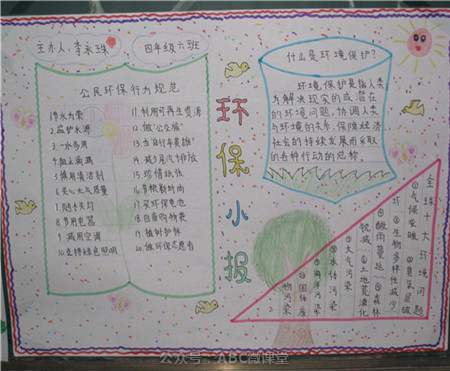 主办人：李永珠
四年级六班
公民环保行为规范
1节水为荣
2.监护水源
3.一水多用
4.阻止滴漏
5.慎用清洁剂
6.关心大气质量
7.随手关灯
8.节用电器
9.减用空调
10.支持绿色照明
11.利用可再生资源
12.做"公交族"
13.当"自行车英雄"
14.减少尾气排放
15.珍惜纸张
17.买环保电池
18.自备购物袋
19.植树护林
20.做环保志愿者
环保小报
什么是环境保护？
环境保护是指人类
为解决现实的或潜在
的环境问题，协调人类
与环境的关系，保障经济
社会的持续发展而采取
的各种行动的总称。
全球十大环境问题
①气候变暖 ②臭氧层破
坏 ③生物多样性减少
④酸雨蔓延 ⑤森林
锐减 ⑥土地荒漠化
⑦大气污染
⑧水体污染
⑨海洋污染
⑩固体废
物污染
公众号：ABC微课堂